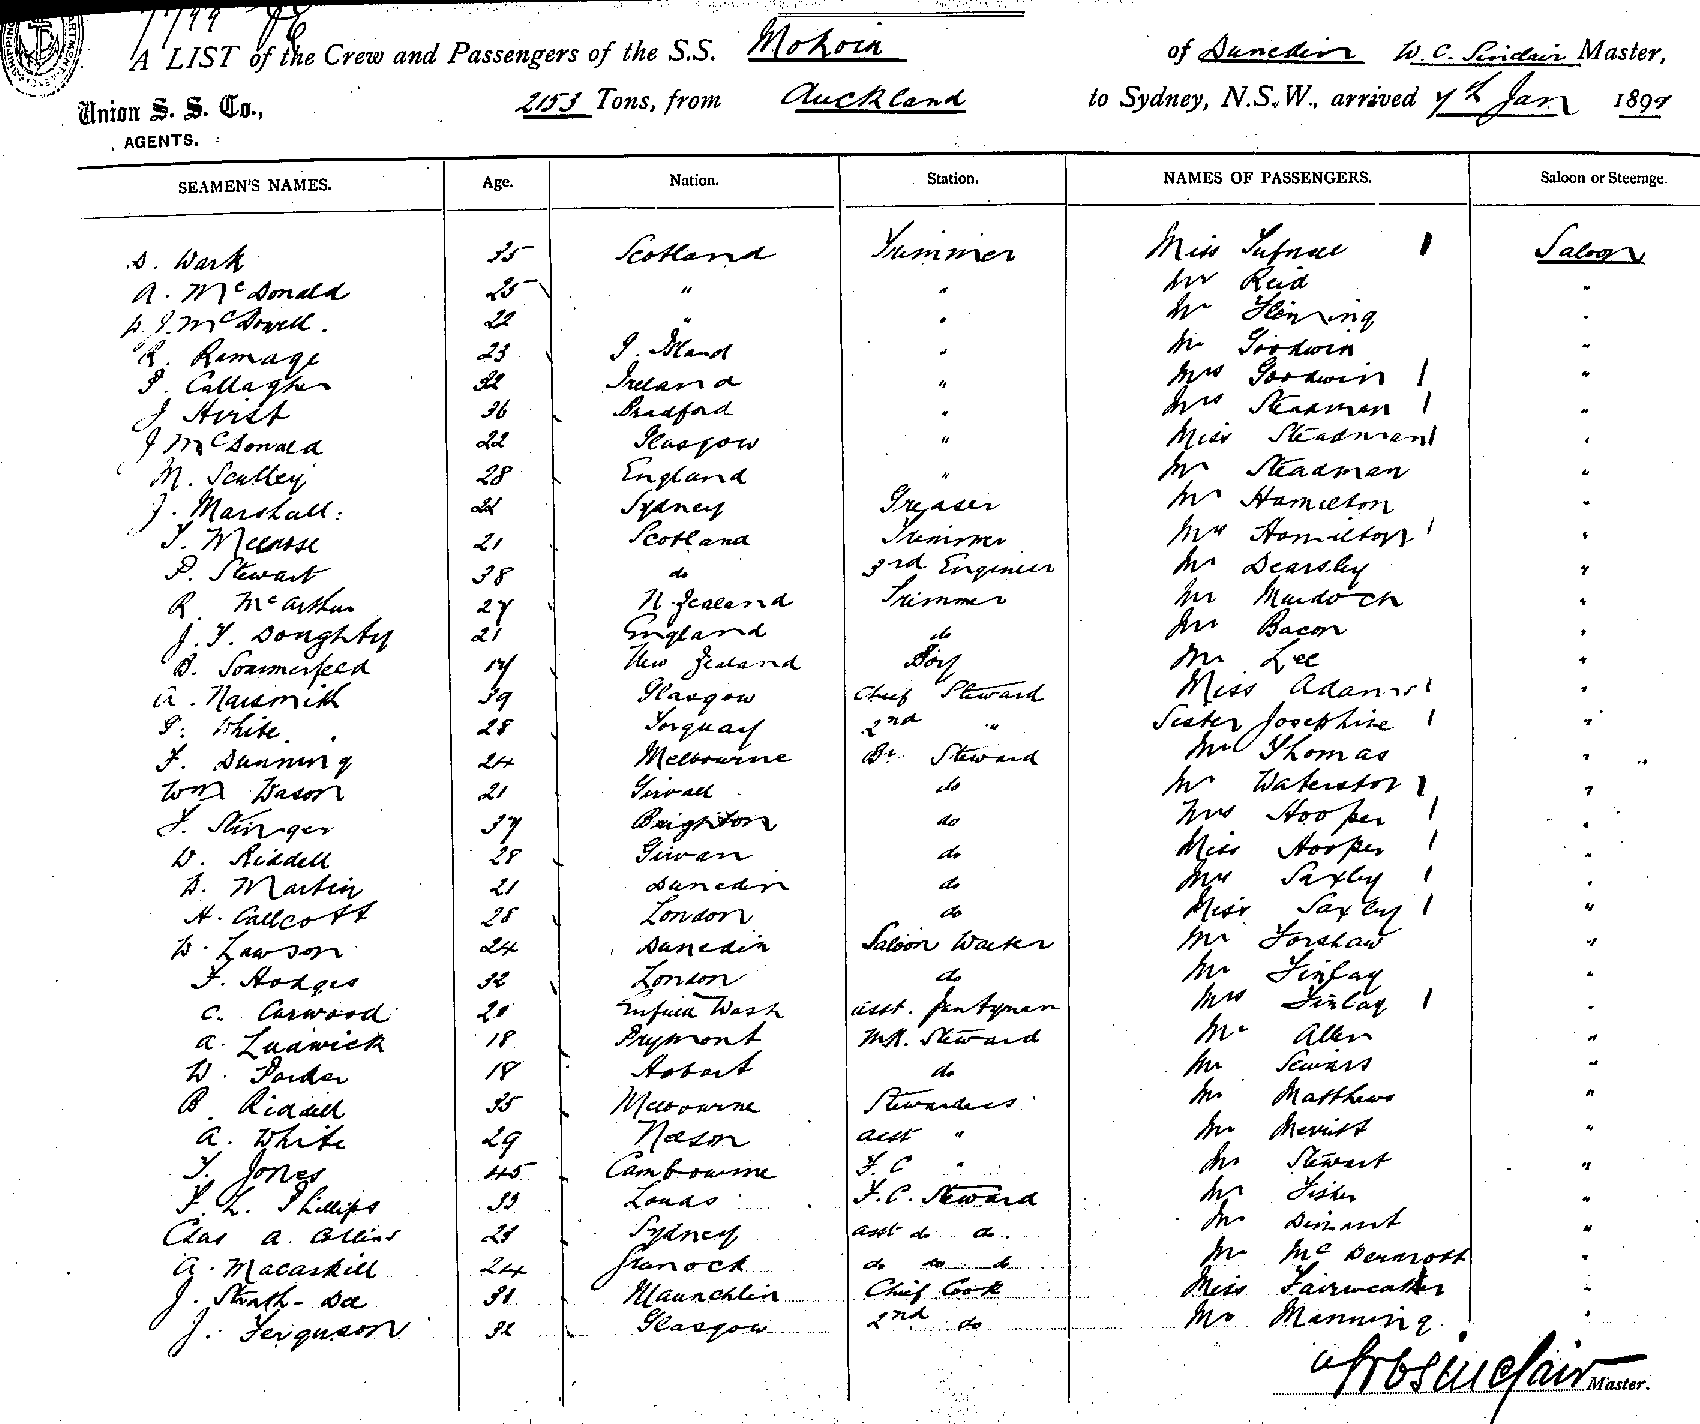 A LIST of the Crew and Passengers of the S.S. Mokoia of Dunedin W. C. Sinclair Master,
Union S. S. Co., 2153 Tons, from Auckland to Sydney, N.S.W., arrived 7th Jan 189
AGENTS.
SEAMEN'S NAMES. Age. Nation. Station. NAMES OF PASSENGERS. Saloon or Steerage.
D. Wark 35 Scotland Trimmer Miss Tufnell 1 Saloon
A. McDonald 25 " " Mr Reid "
D. J. McDowell. 22 " " Mr Fleming "
R. Ramage 23 " Mr Goodwin "
P. Callaghan 32 Ireland " Mrs Goodwin 1 "
J Hirst 36 Bradford " Mrs Steadman 1 "
J McDonald 22 Glasgow " Miss Steadman 1 "
M. Sculley 28 England " Mr Steadman "
J. Marshall: 21 Sydney Greaser Mr Hamilton "
T. Melrose 21 Scotland Trimmer Mrs Hamilton 1 "
P. Stewart 38 do 3rd Engineer Mr Dearsley "
R. McArthur 27 N Zealand Trimmer Mr Murdoch "
J. T. Doughty 21 England do Mr Bacon "
B. Sommerfeld 17 New Zealand Boy Mr Lee "
A. Naismith 39 Glasgow Chief Steward Miss Adams 1 "
P. White. 28 Torquay 2nd " Sister Josephine 1 "
F. Dunning 24 Melbourne Br Steward Mr Thomas "
Wm Wason 21 do Mr Waterston 1 "
F. Stringer 37 Brighton do Mrs Hooper 1 "
D. Riddell 28 Girvan do Miss Hooper 1 "
D. Martin 21 Dunedin do Mrs Saxby 1 "
H. Callcott 28 London do Miss Saxby 1 "
D. Lawson 24 Dunedin Saloon Waiter Mr Forshaw "
F. Hodges 32 London do Mr Finlay "
C. Corwood 20 Enfield Wash asst. Pantryman Mrs Finlay 1 "
A. Ludwick 18 Prymont MR. Steward Mr Allen "
W. Parker 18 Hobart do Mr "
B. Riddell 35 Melbourne Stewardess Mr Matthews "
A. White 29 Nelson asst " Mr Merritt "
T. Jones 45 Cambourne F. C " Mr Stewart "
F. L. Phillips 33 Leeds F. C. Steward Mr Fisher "
Chas A. Collins 23 Sydney asst do do. Mr "
A. Macaskill 24 Granock do do do Mr McDermott "
J. Strath-Dee 31 Maunchlin Chief Cook Miss Fairweather "
J. Ferguson 32 Glasgow 2nd do Mr Manning "
W C Sinclair Master.